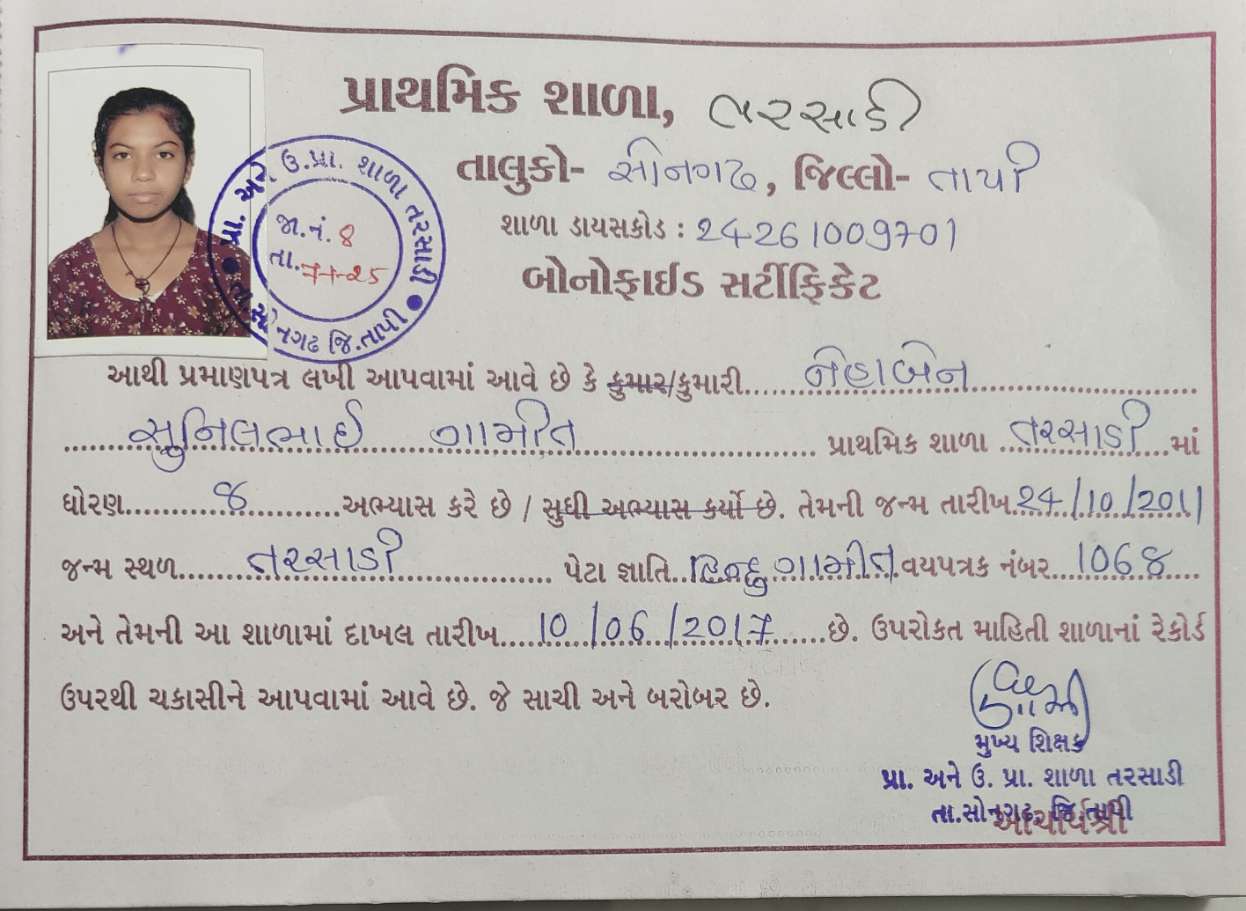 પ્રાથમિક શાળા, તરસાડી
તાલુકો- સોનગઢ, જિલ્લો- તાપી
શાળા ડાયસકોડ : 24261009701
બોનોફાઈડ સર્ટીફિકેટ
પ્રા. અને ઉ.પ્રા. શાળા તરસાડી
તા.સોનગઢ જિ.તાપી
જા.નં. 8
તા.
આથી પ્રમાણપત્ર લખી આપવામાં આવે છે કે કુમાર/કુમારી......નેહાબેન
સુનિલભાઈ ગામીત પ્રાથમિક શાળા ...તરસાડી...માં
ધોરણ.......૪..........અભ્યાસ કરે છે / સુધી અભ્યાસ કર્યો છે. તેમની જન્મ તારીખ.24/10/2011
જન્મ સ્થળ......તરસાડી............ પેટા જ્ઞાતિ..હિન્દુ ગામીત.વયપત્રક નંબર...1068....
અને તેમની આ શાળામાં દાખલ તારીખ....10/06/2017......છે. ઉપરોકત માહિતી શાળાનાં રેકોર્ડ
ઉપરથી ચકાસીને આપવામાં આવે છે. જે સાચી અને બરોબર છે.
મુખ્ય શિક્ષક
પ્રા. અને ઉ. પ્રા. શાળા તરસાડી
તા.સોનગઢ, જિ.તાપી
આચાર્યશ્રી